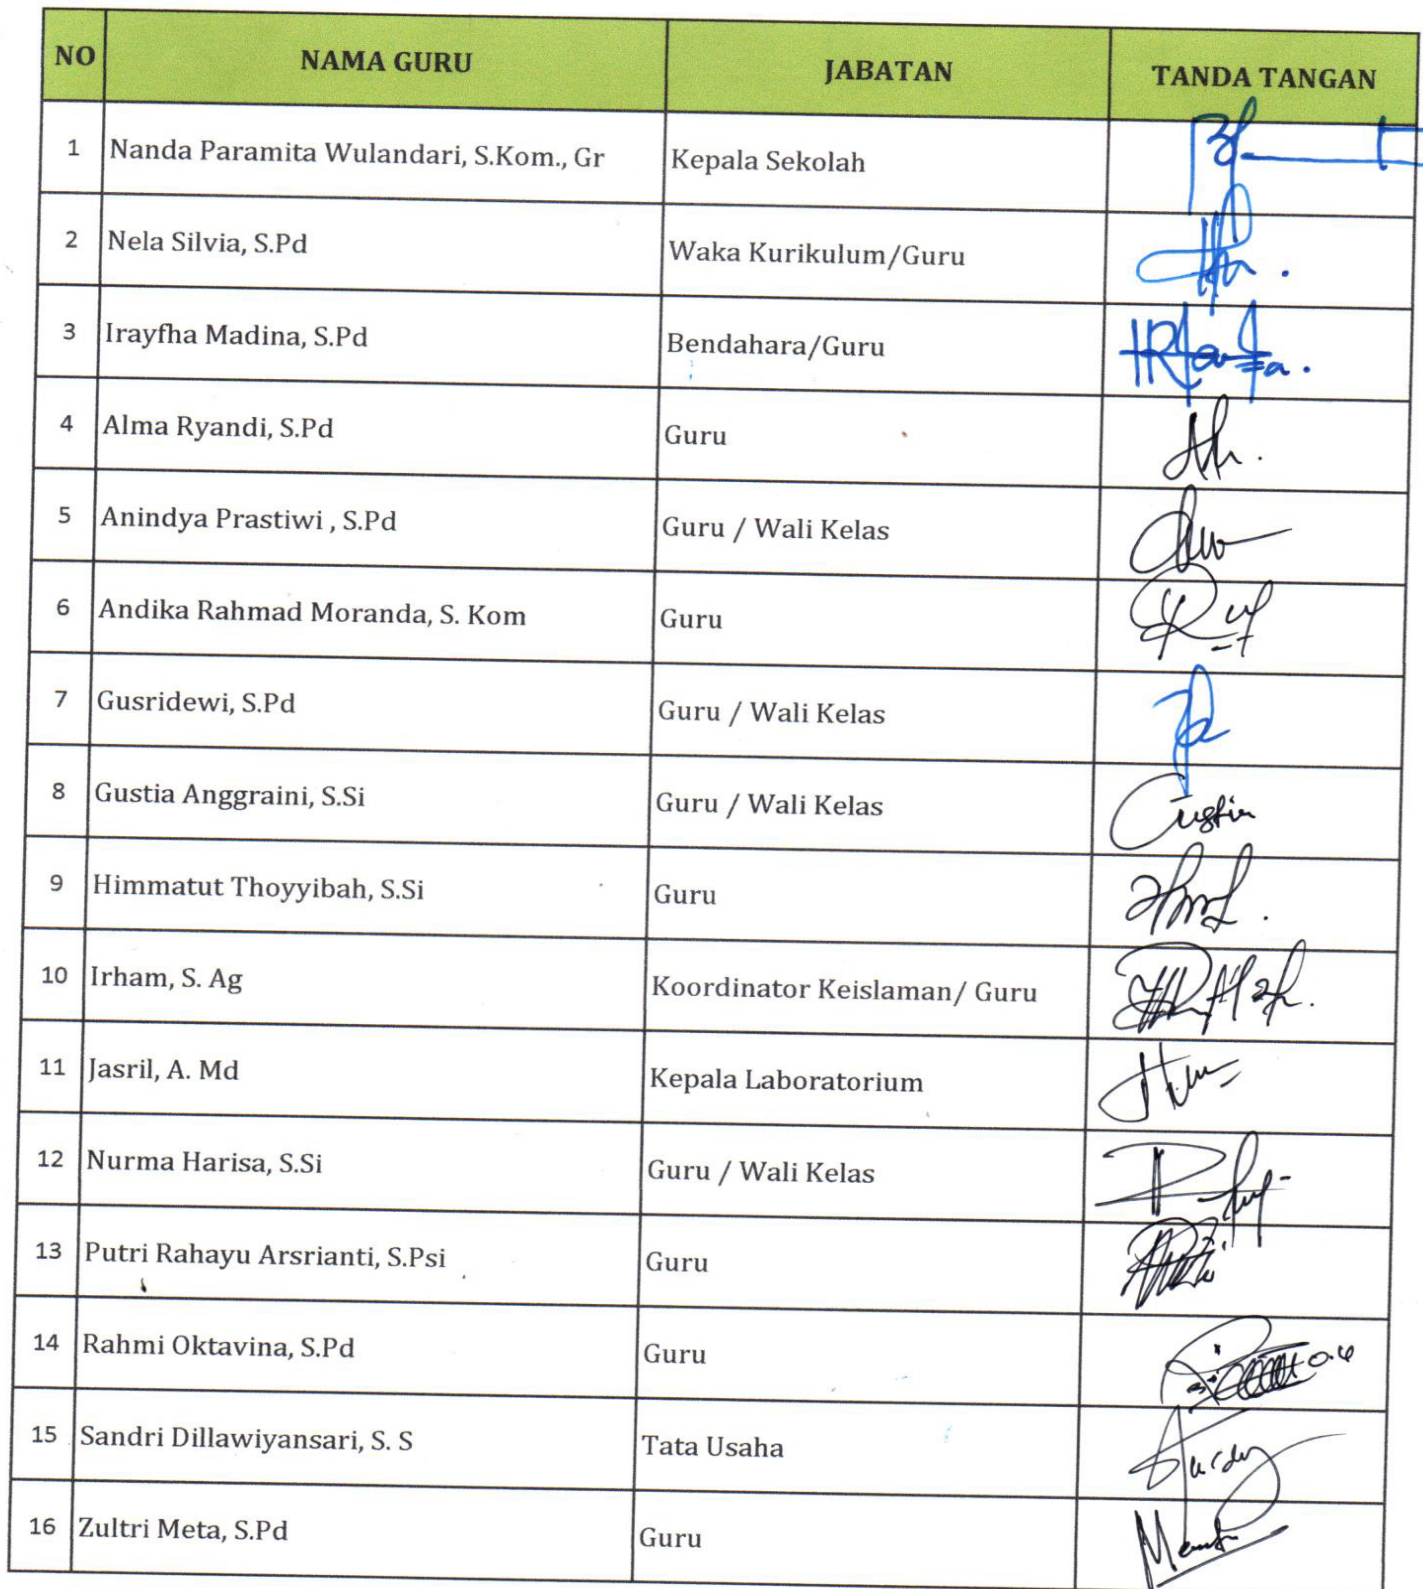 NO NAMA GURU JABATAN TANDA TANGAN
1 Nanda Paramita Wulandari, S.Kom., Gr Kepala Sekolah
2 Nela Silvia, S.Pd Waka Kurikulum/Guru
3 Irayfha Madina, S.Pd Bendahara/Guru
4 Alma Ryandi, S.Pd Guru
5 Anindya Prastiwi , S.Pd Guru / Wali Kelas
6 Andika Rahmad Moranda, S. Kom Guru
7 Gusridewi, S.Pd Guru / Wali Kelas
8 Gustia Anggraini, S.Si Guru / Wali Kelas
9 Himmatut Thoyyibah, S.Si Guru
10 Irham, S. Ag Koordinator Keislaman/ Guru
11 Jasril, A. Md Kepala Laboratorium
12 Nurma Harisa, S.Si Guru / Wali Kelas
13 Putri Rahayu Arsrianti, S.Psi Guru
14 Rahmi Oktavina, S.Pd Guru
15 Sandri Dillawiyansari, S. S Tata Usaha
16 Zultri Meta, S.Pd Guru